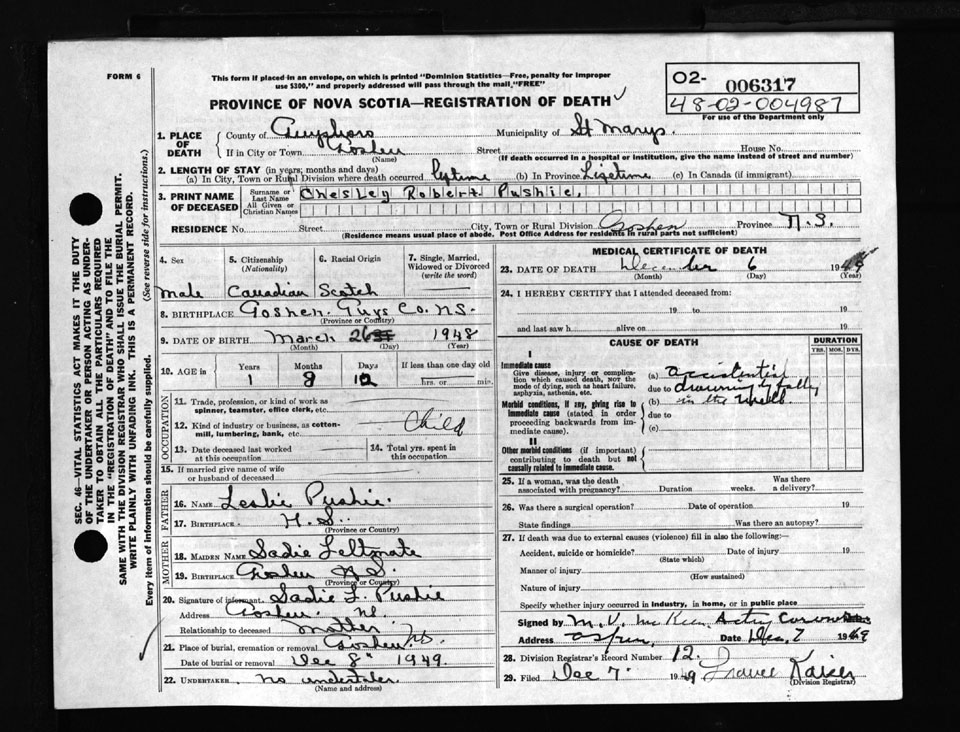 FORM 6
This form if placed in an envelope, on which is printed "Dominion Statistics—Free, penalty for improper
use $300," and properly addressed will pass through the mail, "FREE"
PROVINCE OF NOVA SCOTIA—REGISTRATION OF DEATH
02- 006317
48-02-004987
For use of the Department only
1. PLACE OF DEATH County of Guysboro Municipality of St Marys.
If in City or Town Goshen Street House No.
(Name) (If death occurred in a hospital or institution, give the name instead of street and number)
2. LENGTH OF STAY (in years; months and days)
(a) In City, Town or Rural Division where death occurred lifetime (b) In Province Lifetime (c) In Canada (if immigrant)
3. PRINT NAME OF DECEASED Surname or Last Name All Given or Christian Names Chesley Robert Pushie.
RESIDENCE No. Street City, Town or Rural Division Goshen Province N.S.
(Residence means usual place of abode. Post Office Address for residents in rural parts not sufficient)
4. Sex 5. Citizenship (Nationality) 6. Racial Origin 7. Single, Married, Widowed or Divorced (write the word)
male Canadian Scotch
8. BIRTHPLACE Goshen. Guys Co. N.S.
(Province or Country)
9. DATE OF BIRTH March 26 1948
(Month) (Day) (Year)
10. AGE in Years Months Days If less than one day old
1 8 12 hrs. or min.
OCCUPATION
11. Trade, profession, or kind of work as
spinner, teamster, office clerk, etc.
12. Kind of industry or business, as cotton-
mill, lumbering, bank, etc. Child
13. Date deceased last worked at this occupation 14. Total yrs. spent in this occupation
15. If married give name of wife
or husband of deceased
FATHER
16. NAME Leslie Pushie.
17. BIRTHPLACE N.S.
(Province or Country)
MOTHER
18. MAIDEN NAME Sadie Feltmate
19. BIRTHPLACE Goshen N.S.
(Province or Country)
20. Signature of informant Sadie F. Pushie
Address Goshen.
Relationship to deceased mother
21. Place of burial, cremation or removal Goshen N.S.
Date of burial or removal Dec 8" 1949.
22. UNDERTAKER no undertaker
(Name and address)
MEDICAL CERTIFICATE OF DEATH
23. DATE OF DEATH December 6 1949
(Month) (Day) (Year)
24. I HEREBY CERTIFY that I attended deceased from:
19 to 19
and last saw h alive on 19
CAUSE OF DEATH DURATION
YRS. MOS. DYS.
I
Immediate cause
Give disease, injury or complica-
tion which caused death, NOT the
mode of dying, such as heart failure,
asphyxia, asthenia, etc.
(a) accidential
due to drowning by falling
Morbid conditions, if any, giving rise to
immediate cause (stated in order
proceeding backwards from im-
mediate cause).
(b) in the well
due to
(c)
II
Other morbid conditions (if important)
contributing to death but not
causally related to immediate cause.
25. If a woman, was the death
associated with pregnancy? Duration weeks. Was there a delivery?
26. Was there a surgical operation? Date of operation 19
State findings Was there an autopsy?
27. If death was due to external causes (violence) fill in also the following:—
Accident, suicide or homicide? Date of injury 19
(State which)
Manner of injury
(How sustained)
Nature of injury
Specify whether injury occurred in industry, in home, or in public place
Signed by M. D. McKeen Acting Coroner
Address Date Dec, 7 1949
28. Division Registrar's Record Number 12.
29. Filed Dec 7 1949 Kaiser
(Division Registrar)
SEC. 46—VITAL STATISTICS ACT MAKES IT THE DUTY
OF THE UNDERTAKER OR PERSON ACTING AS UNDER-
TAKER TO OBTAIN ALL THE PARTICULARS REQUIRED
IN THE "REGISTRATION OF DEATH" AND TO FILE THE
SAME WITH THE DIVISION REGISTRAR WHO SHALL ISSUE THE BURIAL PERMIT.
WRITE PLAINLY WITH UNFADING INK. THIS IS A PERMANENT RECORD.
Every item of information should be carefully supplied. (See reverse side for instructions.)